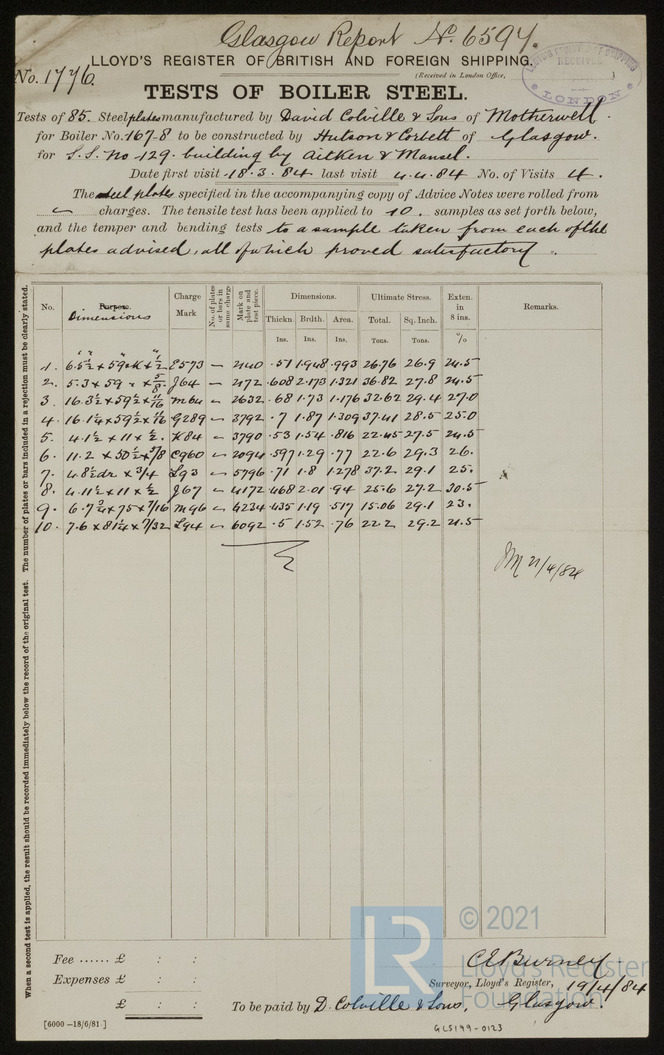 Glasgow Report No. 6597.
No. 1776.
LLOYD'S REGISTER OF BRITISH AND FOREIGN SHIPPING.
(Received in London Office, )
LONDON
TESTS OF BOILER STEEL.
Tests of 85. Steel plates manufactured by David Colville & Sons of Motherwell.
for Boiler No. 167.8 to be constructed by Hutson & Corbett of Glasgow.
for S.S. No 129. building by Aitken & Mansel.
Date first visit 18.3.84 last visit 4.4.84 No. of Visits 4.
The steel plates specified in the accompanying copy of Advice Notes were rolled from
charges. The tensile test has been applied to 10. samples as set forth below,
and the temper and bending tests to a sample taken from each of the
plates advised, all of which proved satisfactory.
When a second test is applied, the result should be recorded immediately below the record of the original test. The number of plates or bars included in a rejection must be clearly stated.
No. Purpose. Dimensions Charge Mark No. of plates or bars in same charge Mark on plate and test piece. Dimensions. Ultimate Stress. Exten. in 8 ins. Remarks.
Thickn. Brdth. Area. Total. Sq. Inch. %
Ins. Ins. Ins. Tons. Tons.
1. 6.5½ × 59 × ½ E573 2140 .51 1.948 .993 26.76 26.9 24.5
2. 5.3 × 59 × 5/8 J64 2172 .608 2.173 1.321 36.82 27.8 24.5
3. 16.3½ × 59½ × 11/16 M64 2632 .68 1.73 1.176 32.62 29.4 27.0
4. 16.1¼ × 59½ × 11/16 G289 3792 .7 1.87 1.309 37.41 28.5 25.0
5. 4.1½ × 11 × ½. K84 3790 .53 1.54 .816 22.45 27.5 24.5
6. 11.2 × 50½ × 5/8 C960 2094 .597 1.29 .77 22.6 29.3 26.
7. 4.8½ dr × 3/4 L93 5796 .71 1.8 1.278 37.2 29.1 25.
8. 4.11½ × 11 × ½ J67 4172 .468 2.01 .94 25.6 27.2 30.5
9. 6.7¾ × 75 × 7/16 M96 4234 .435 1.19 .517 15.06 29.1 23.
10. 7.6 × 81¼ × 7/32 L94 6092 .5 1.52 .76 22.2 29.2 21.5
21/4/84
LR © 2021
Lloyd's Register
Foundation
Fee ...... £ : :
Expenses £ : :
£ : :
C E Burney
Surveyor, Lloyd's Register, 19/4/84
To be paid by D. Colville & Sons, Glasgow.
[6000—18/6/81.]
GLS199-0123